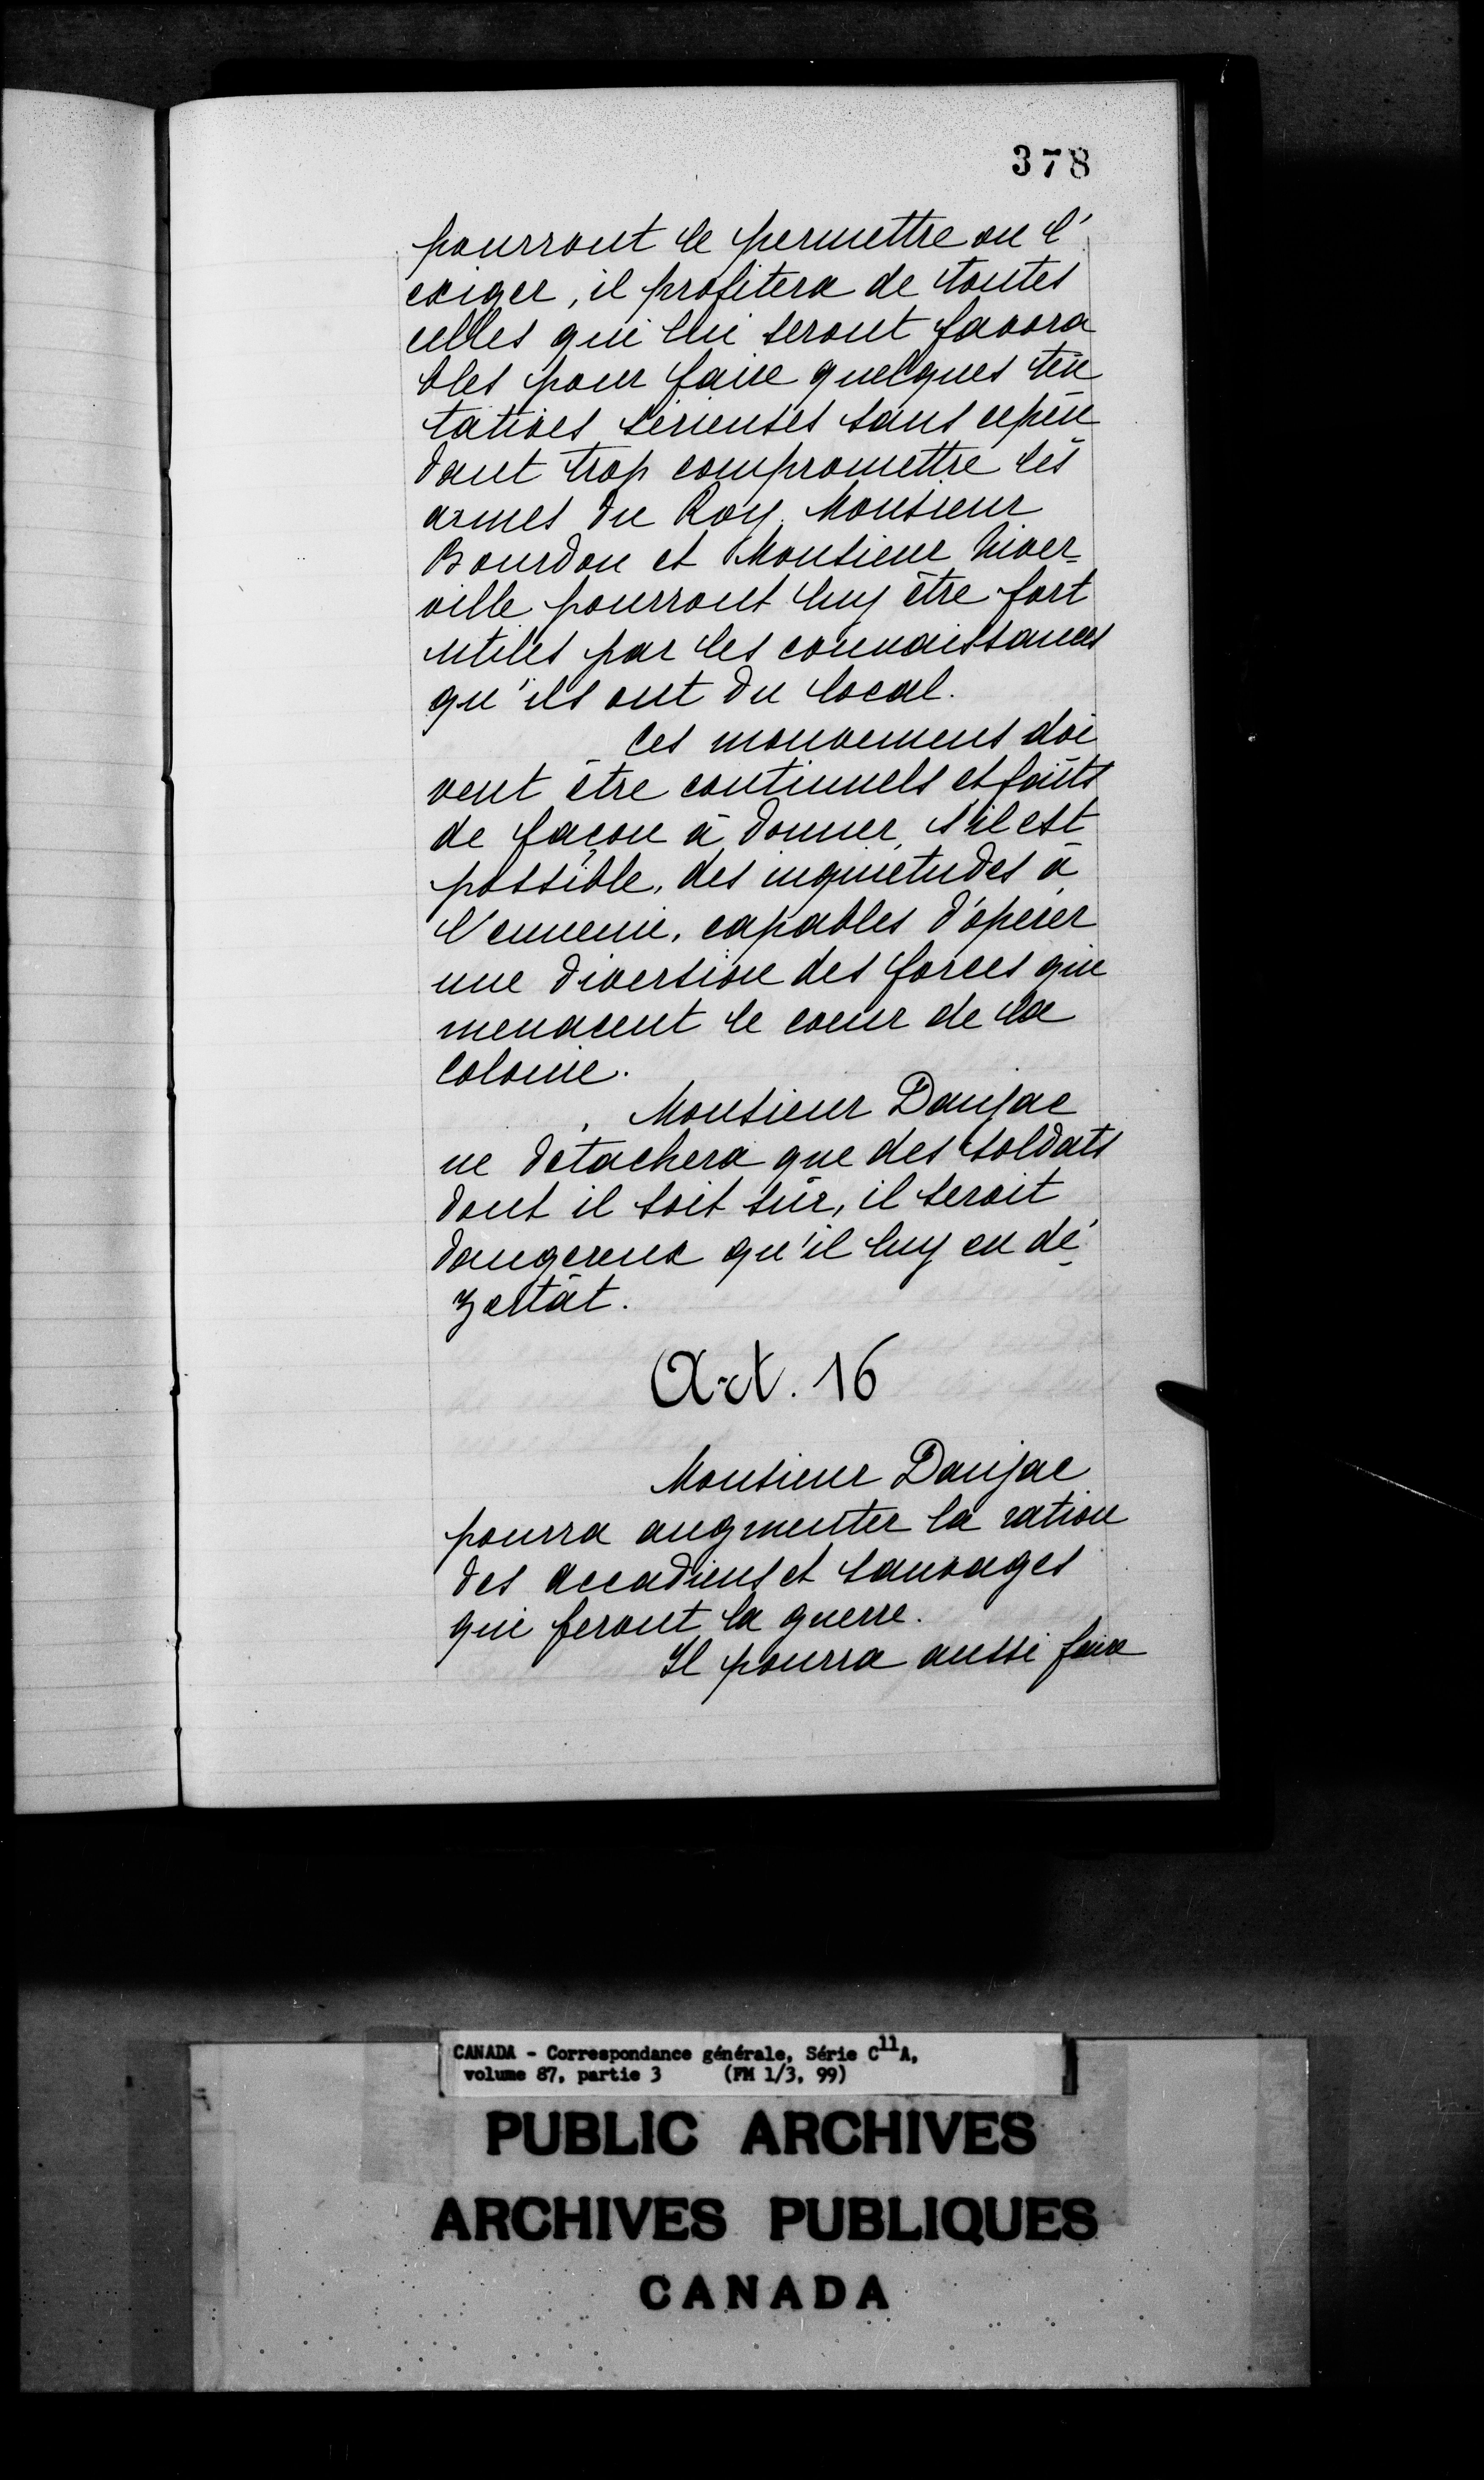 378
pourront le permettre ou l'
exiger, il profitera de toutes
celles qui lui seront favora
bles pour faire quelques ten
tatives sérieuses sans cepen
dant trop compromettre les
armes du Roy. Monsieur
Bourdon et Monsieur Niver-
ville pourront luy être fort
utiles par les connaissances
qu'ils ont du local.
Ces mouvemens doi
vent être continuels et faits
de façon à donner, s'il est
possible, des inquietudes à
l'ennemi, capables d'opérer
une diversion des forces qui
menacent le coeur de la
Colonie.
Monsieur Danjac
ne détachera que des soldats
dont il soit sûr, il seroit
dangereux qu'il luy en dé
zertât.
Art. 16
Monsieur Danjac
pourra augmenter la ration
des accadiens et sauvages
qui feront la guerre.
Il pourra aussi faire
CANADA - Correspondance générale, Série C11A,
volume 87, partie 3 (FM 1/3, 99)
PUBLIC ARCHIVES
ARCHIVES PUBLIQUES
CANADA